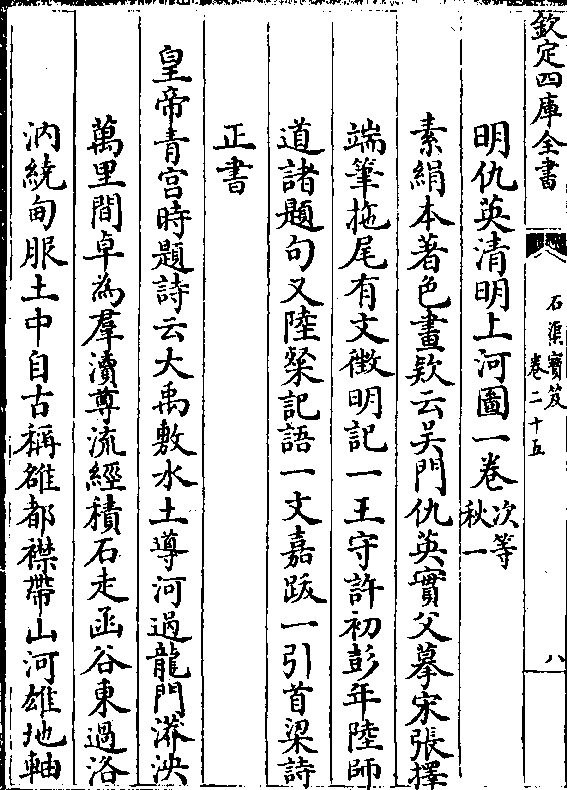 欽定四庫全書
石渠寶笈
卷二十五
八
明仇英清明上河圖一卷次等秋一
素絹本著色畫欵云吴門仇英實父摹宋張擇
端筆拖尾有文徵明記一王守許初彭年陸師
道諸題句又陸粲記語一文嘉跋一引首梁詩
正書
皇帝青宫時題詩云大禹敷水土導河過龍門漭泱
萬里間卓為羣瀆尊流經積石走函谷東過洛
汭繞甸服土中自古稱雒都襟帶山河雄地軸